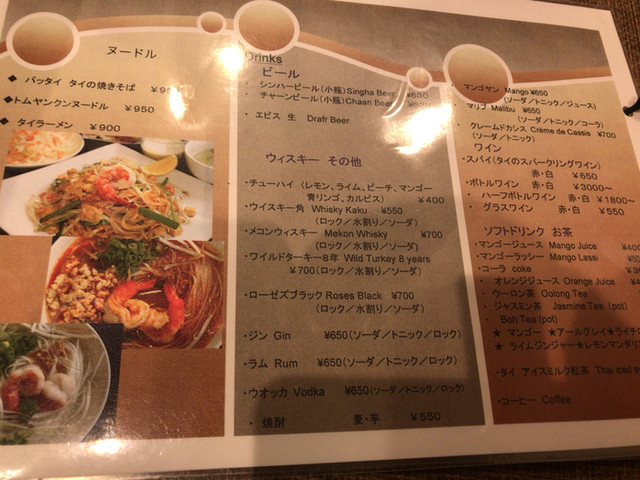 ヌードル
◆ パッタイ タイの焼きそば
◆トムヤンクンヌードル ￥950
◆ タイラーメン ￥900
Drinks
ビール
・ シンハービール(小瓶)Singha Beer ￥630
・ チャーンビール(小瓶)Chaan Beer
・ エビス 生 Drafr Beer
ウィスキー その他
・チューハイ (レモン、ライム、ピーチ、マンゴー
青リンゴ、カルピス) ￥400
・ウイスキー角 Whisky Kaku ￥550
(ロック/水割り/ソーダ)
・メコンウィスキー Mekon Whisky ￥700
(ロック/水割り/ソーダ)
・ワイルドターキー8年 Wild Turkey 8 years
￥700(ロック/水割り/ソーダ)
・ローゼズブラック Roses Black ￥700
(ロック/水割り/ソーダ)
・ジン Gin ￥650(ソーダ/トニック/ロック)
・ラム Rum ￥650(ソーダ/トニック/ロック)
・ウオッカ Vodka ￥650(ソーダ/トニック/ロック)
・ 焼酎 麦・芋 ￥550
マンゴヤン Mango ￥650
(ソーダ/トニック/ジュース)
・マリブ Malibu ￥650
(ソーダ/トニック/コーラ)
・クレームドカシス Crème de Cassis ￥700
(ソーダ/トニック)
ワイン
・スパイ(タイのスパークリングワイン)
赤・白 ￥650
・ボトルワイン 赤・白 ￥3000～
・ ハーフボトルワイン 赤・白 ￥1800～
・ グラスワイン 赤・白 ￥550
ソフトドリンク お茶
・マンゴージュース Mango Juice
・マンゴーラッシー Mango Lassi
・コーラ coke
・ オレンジジュース Orange Juice
・ウーロン茶 Oolong Tea
・ジャスミン茶 Jasmine Tea (pot)
・ Boh Tea (pot)
★ マンゴー ★アールグレイ★ライチ
★ ライムジンジャー★レモンマンダリ
・タイ アイスミルク紅茶 Thai iced
・コーヒー Coffee